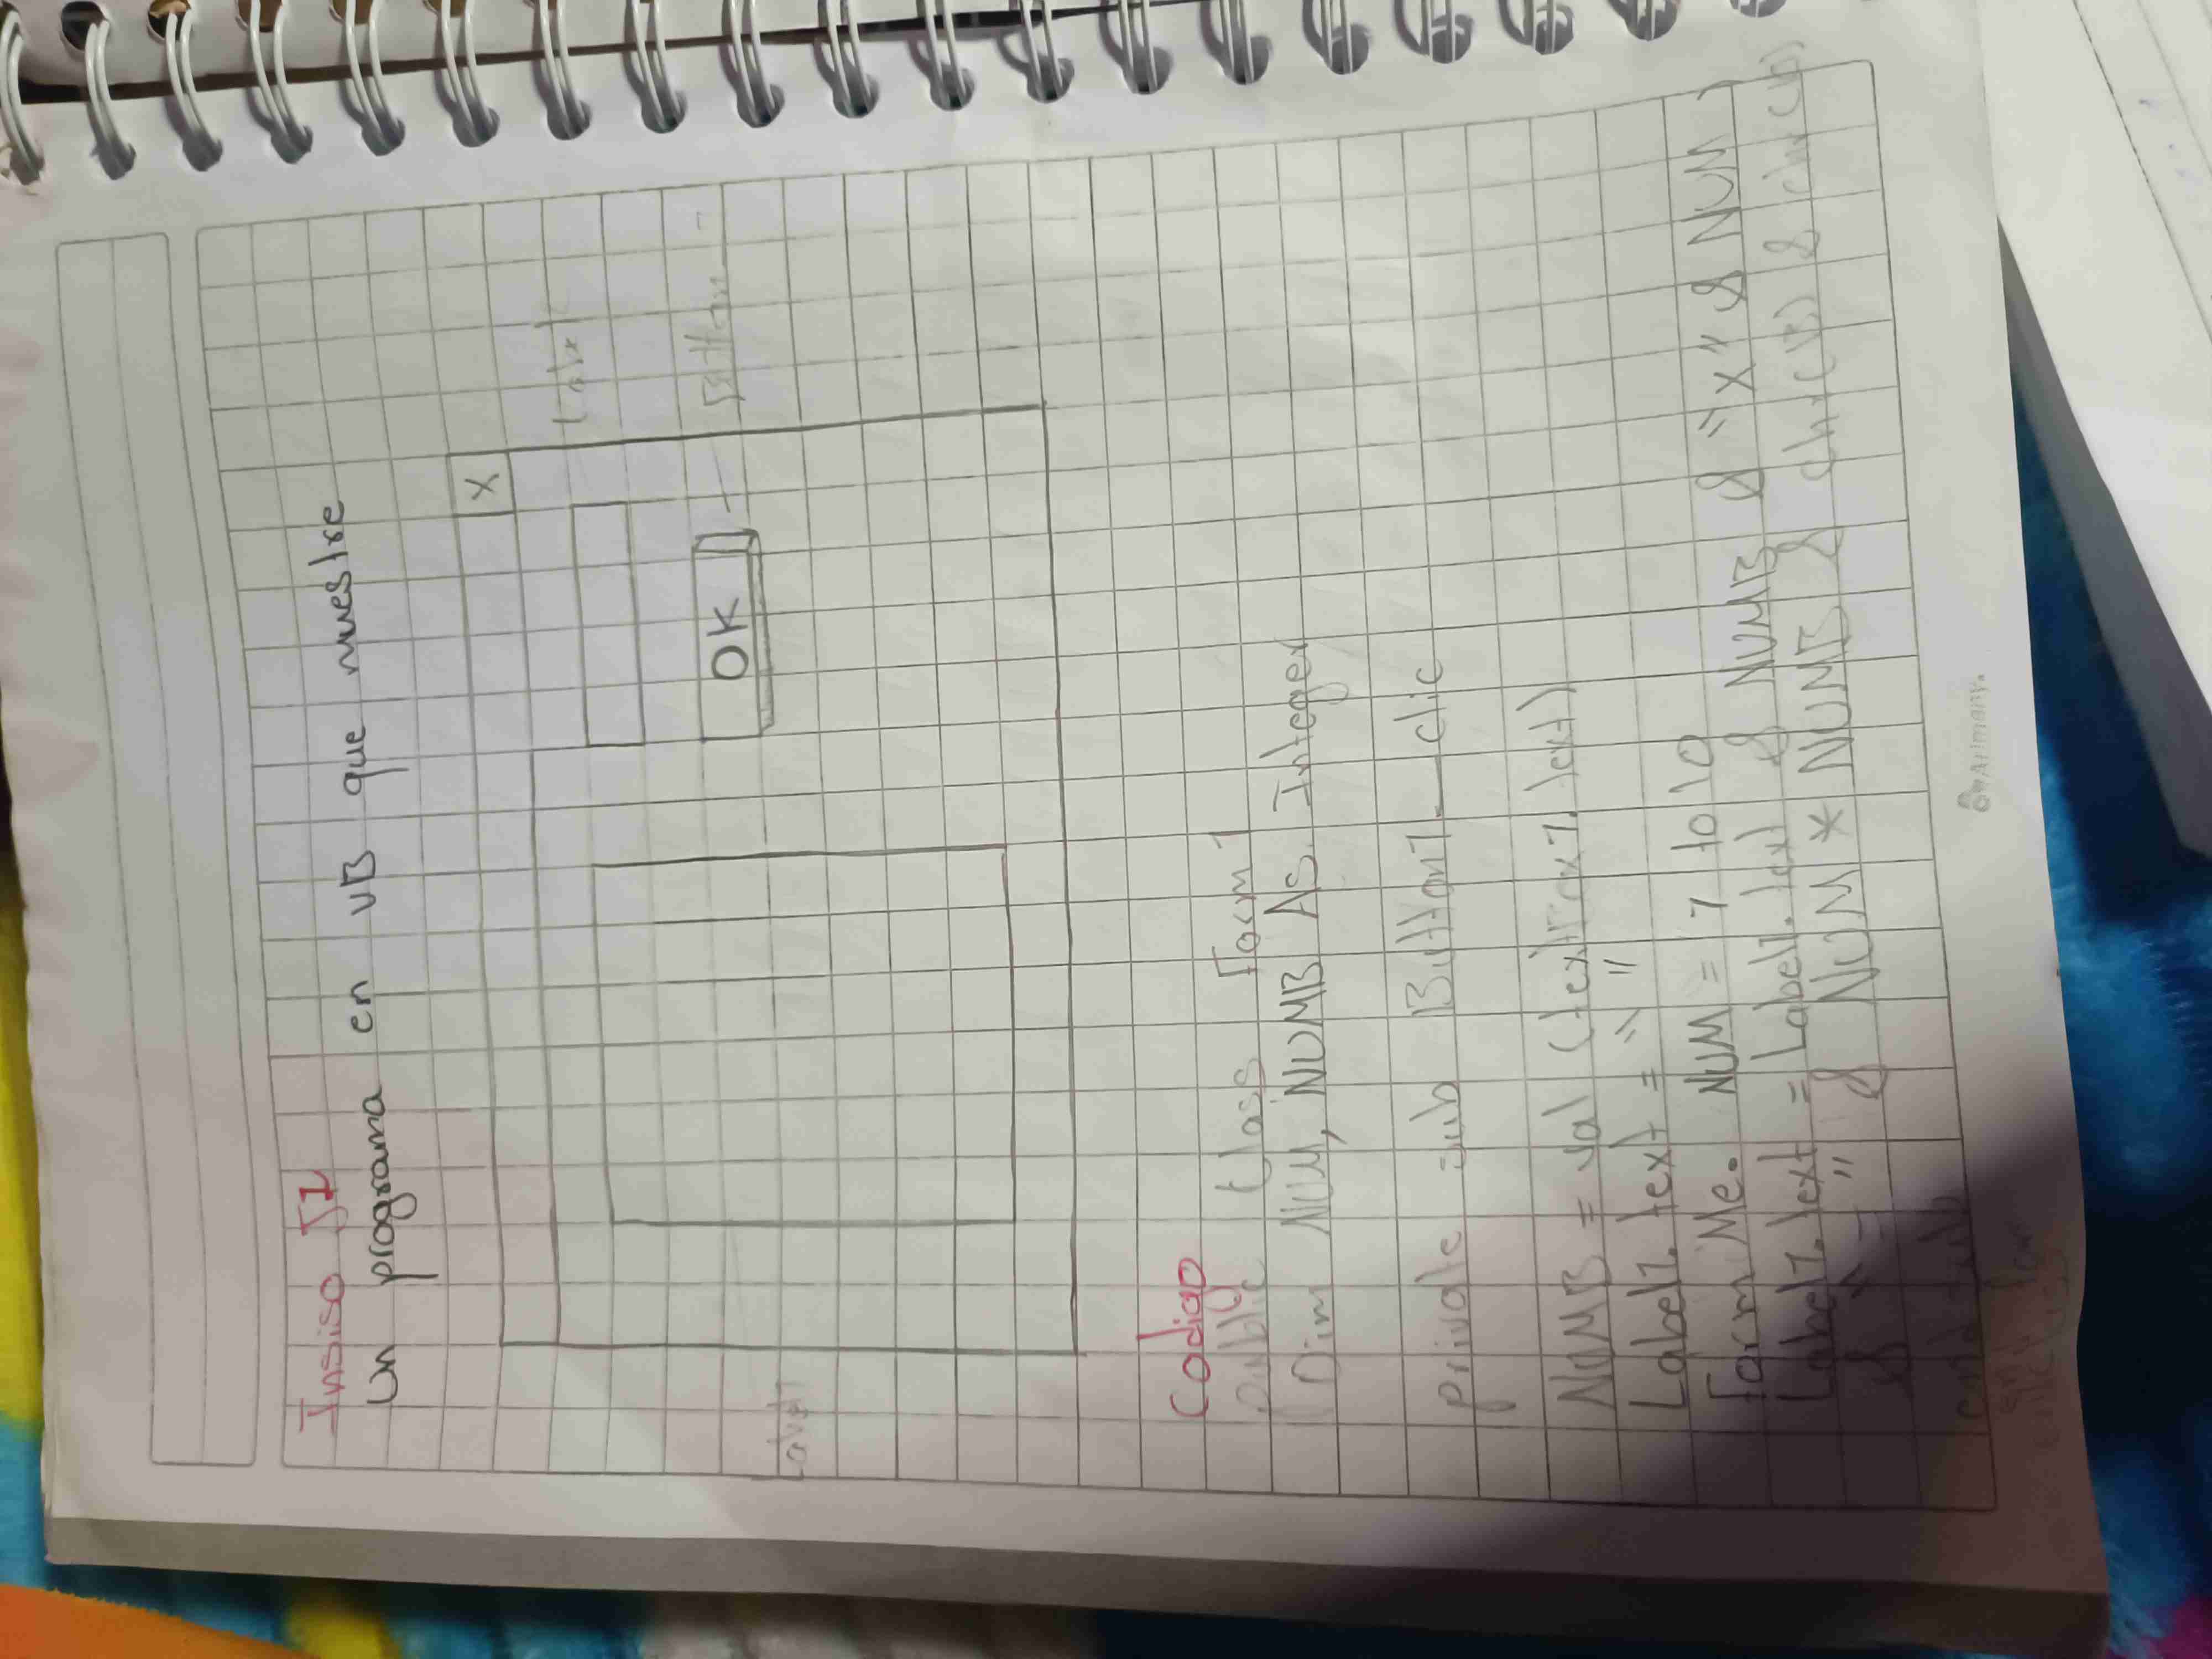 Insiso
un programa en VB que muestre
X
Label
OK
Button
Label
Codigo
Public Class Form1
Dim NUM, NUMB As Integer
Private sub Button1_clic
NUMB = val (textTox1.text)
Label1.text = " "
Form Me. NUM = 1 to 10
Label1.text = Label1.text & NUMB & "X" & NUM
& "=" & NUM * NUMB & chr(13) & chr(13)
end sub
Brarimany.